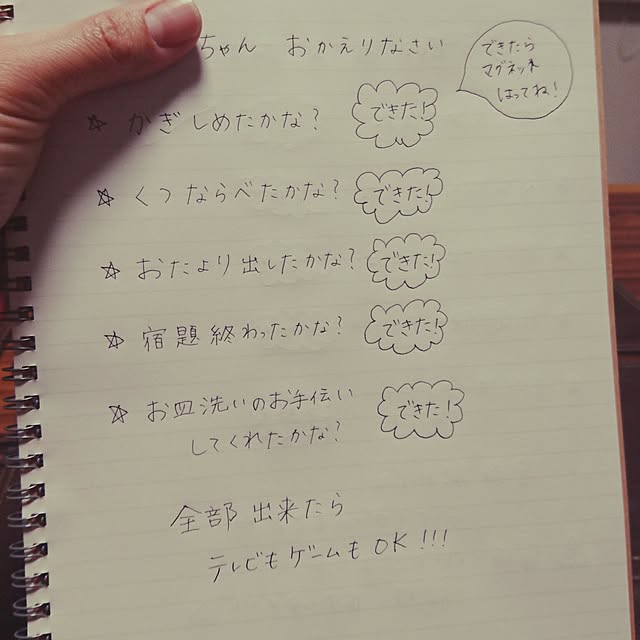 ちゃん おかえりなさい
できたら
マグネット
はってね!
☆ かぎしめたかな? できた!
☆ くつならべたかな? できた!
☆ おたより出したかな? できた!
☆ 宿題終わったかな? できた!
☆ お皿洗いのお手伝い
してくれたかな? できた!
全部出来たら
テレビもゲームもOK!!!